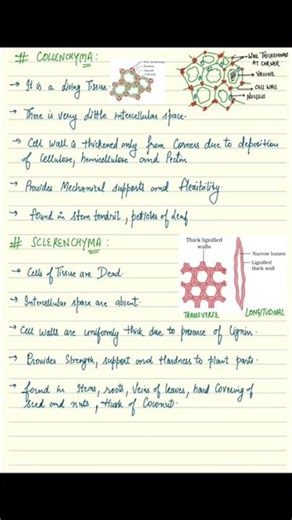 # COLLENCHYMA:
Wall thickenings
Nucleus
Vacuole
Cell wall
WALL THICKENINGS
AT CORNER
VACUOLE
CELL WALL
NUCLEUS
→ It is a living Tissue.
→ There is very little intercellular space.
→ Cell Wall is thickened only from Corners due to deposition
of Cellulose, hemicellulose and Pectin
→ Provides Mechanical supports and flexibility.
→ Found in stem tendril, petioles of leaf
# SCLERENCHYMA:
Thick lignified
walls
Narrow lumen
Lignified
thick wall
TRANSVERSE
LONGITUDINAL
→ Cells of Tissue are Dead.
→ Intercellular space are absent.
→ Cell Walls are uniformly thick due to presence of Lignin.
→ Provides Strength, support and Hardness to plant parts.
→ found in Stems, roots, Veins of leaves, hard Covering of
Seed and nuts, Husk of Coconut.